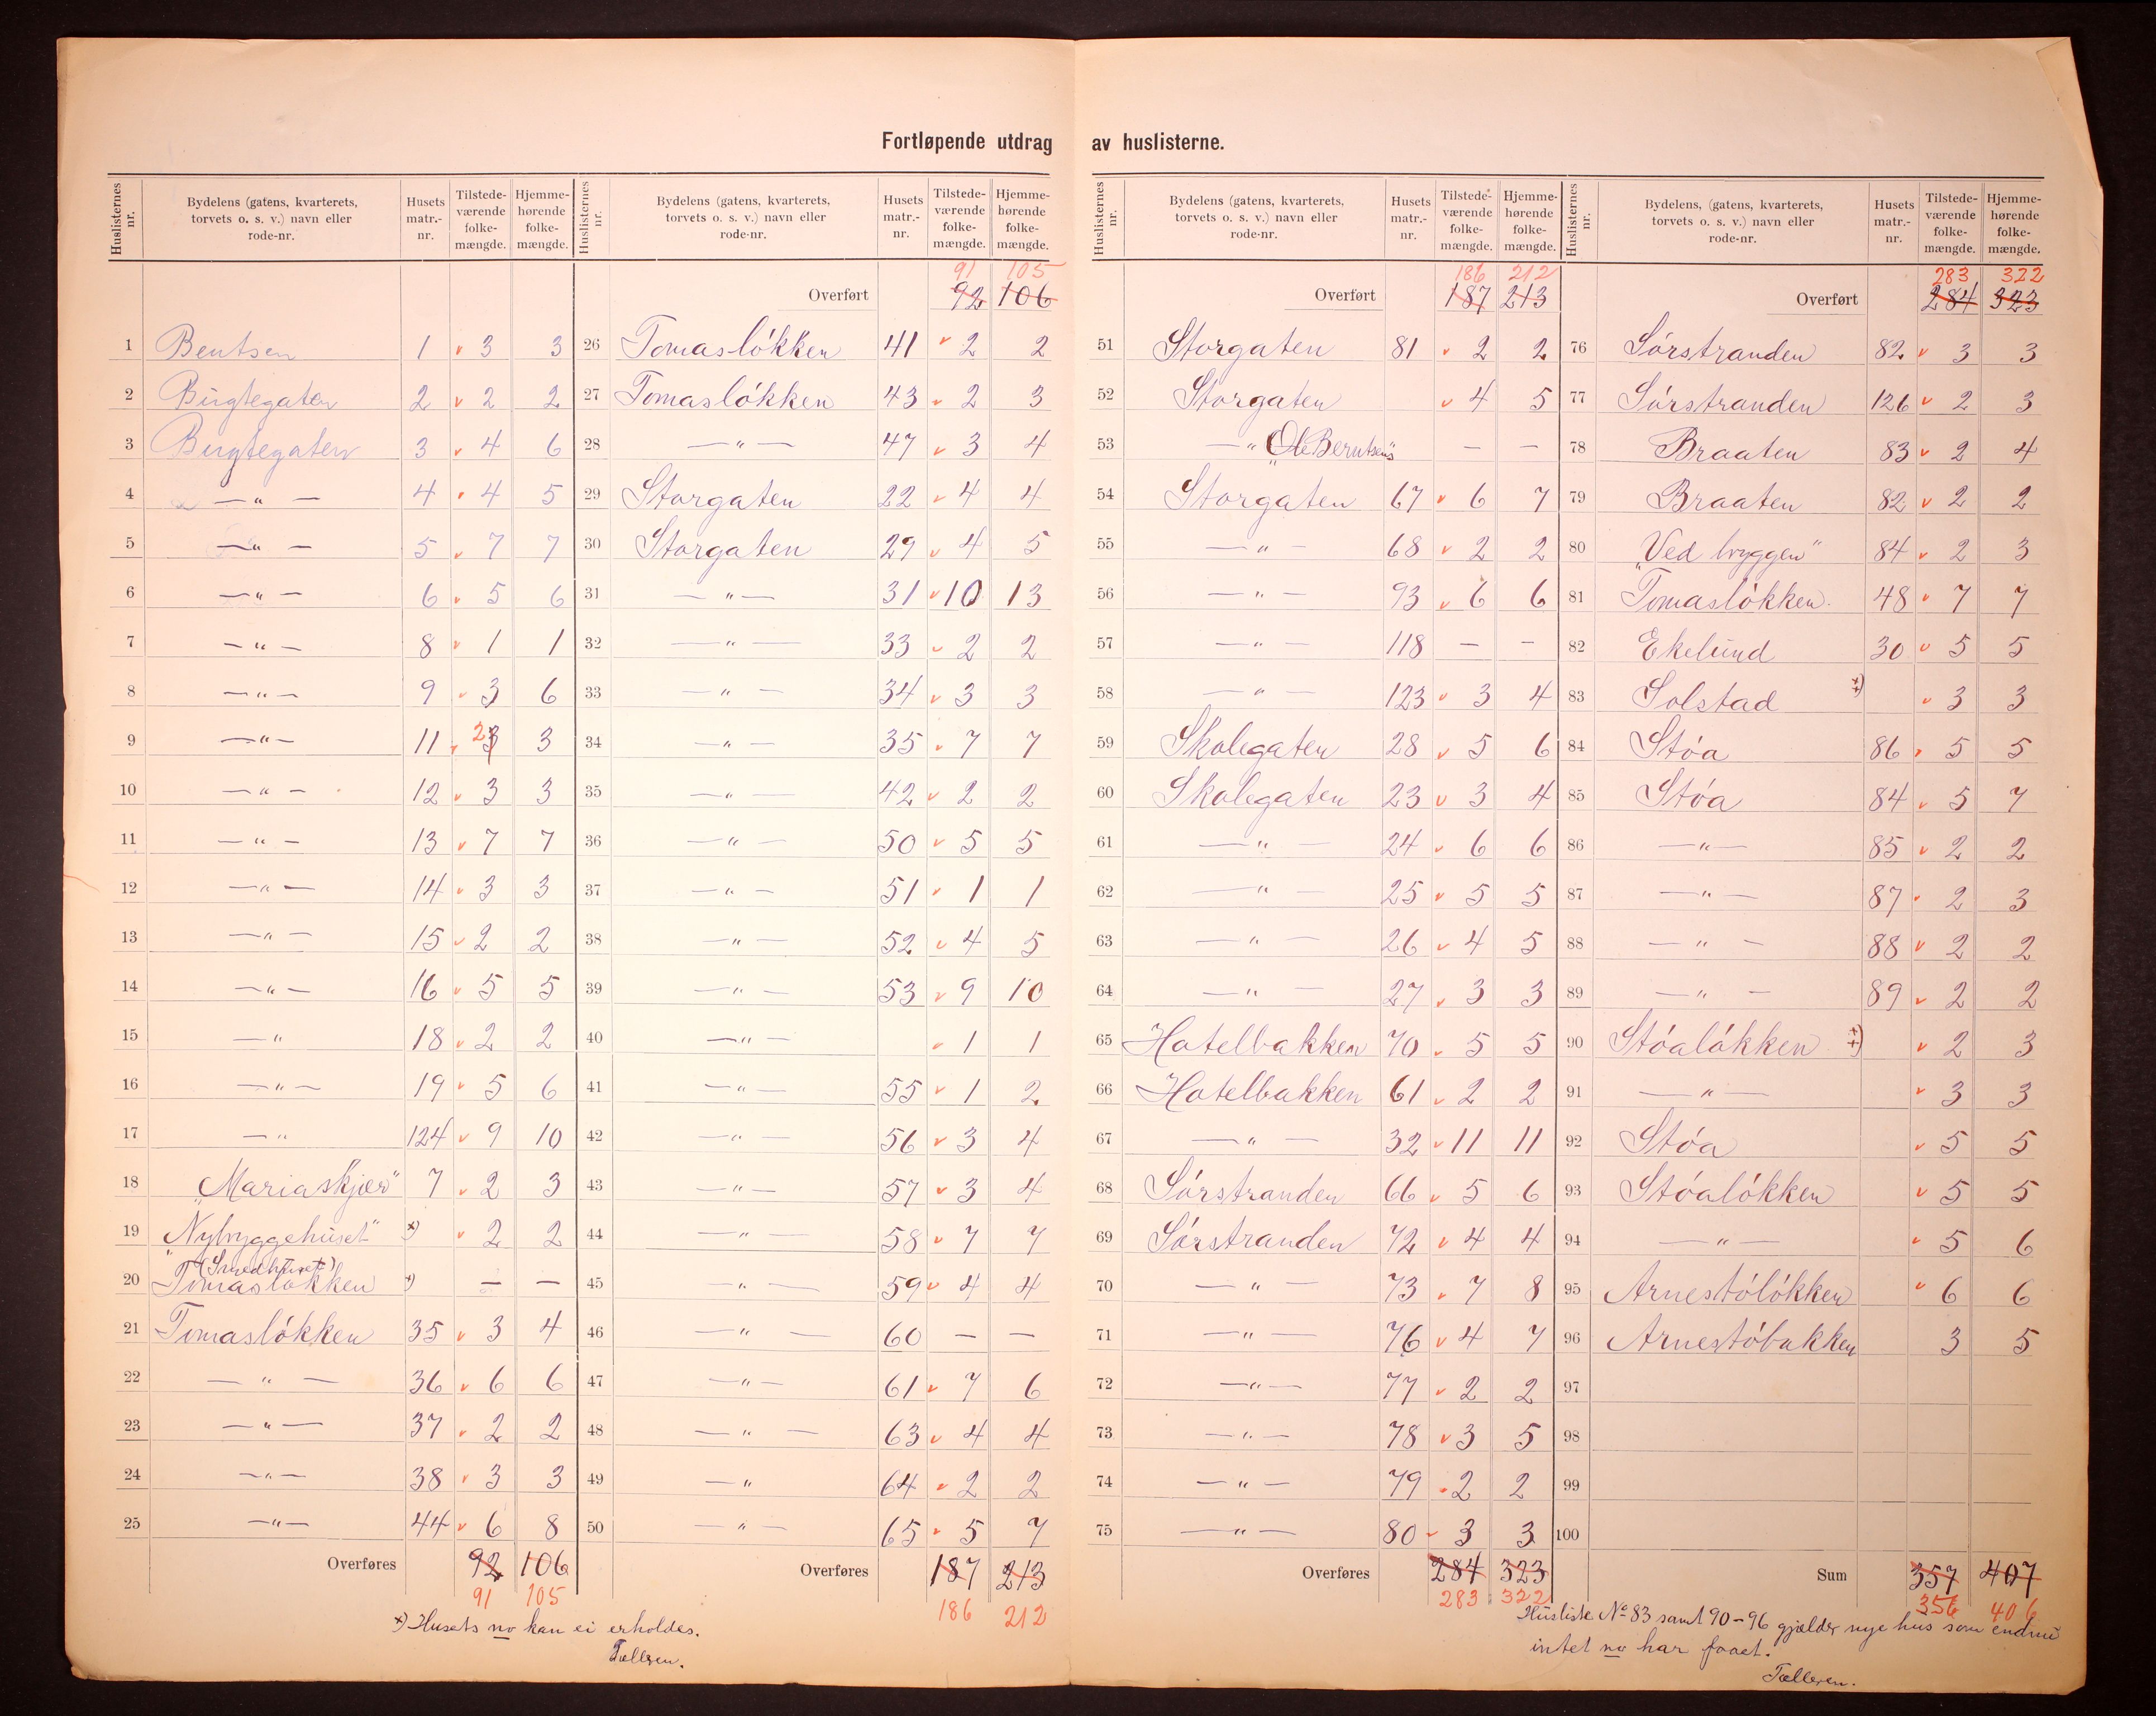 Fortløpende utdrag av huslisterne.
Huslisternes nr. | Bydelens (gatens, kvarterets, torvets o. s. v.) navn eller rode-nr. | Husets matr.-nr. | Tilstede-værende folke-mængde. | Hjemme-hørende folke-mængde.
1 Bentsen 1 v 3 3
2 Bugtegaten 2 v 2 2
3 Bugtegaten 3 v 4 6
4 — " — 4 v 4 5
5 — " — 5 v 7 7
6 — " — 6 v 5 6
7 — " — 8 v 1 1
8 — " — 9 v 3 6
9 — " — 11 v 2 3 3
10 — " — 12 v 3 3
11 — " — 13 v 7 7
12 — " — 14 v 3 3
13 — " — 15 v 2 2
14 — " — 16 v 5 5
15 — " 18 v 2 2
16 — " — 19 v 5 6
17 — " 124 v 9 10
18 "Mariaskjær" 7 v 2 3
19 "Nybyggehuset" x) v 2 2
20 (Smedhuset) Tomasløkken x) — —
21 Tomasløkken 35 v 3 4
22 — " — 36 v 6 6
23 — " — 37 v 2 2
24 — " — 38 v 3 3
25 — " — 44 v 6 8
Overføres 92 106
91 105
x) Husets no kan ei erholdes.
Tælleren.
Huslisternes nr. | Bydelens (gatens, kvarterets, torvets o. s. v.) navn eller rode-nr. | Husets matr.-nr. | Tilstede-værende folke-mængde. | Hjemme-hørende folke-mængde.
91 105
Overført 92 106
26 Tomasløkken 41 v 2 2
27 Tomasløkken 43 v 2 3
28 — " — 47 v 3 4
29 Storgaten 22 v 4 4
30 Storgaten 29 v 4 5
31 — " — 31 v 10 13
32 — " — 33 v 2 2
33 — " — 34 v 3 3
34 — " — 35 v 7 7
35 — " — 42 v 2 2
36 — " — 50 v 5 5
37 — " — 51 v 1 1
38 — " — 52 v 4 5
39 — " — 53 v 9 10
40 — " — v 1 1
41 — " — 55 v 1 2
42 — " — 56 v 3 4
43 — " — 57 v 3 4
44 — " — 58 v 7 7
45 — " — 59 v 4 4
46 — " — 60 — —
47 — " — 61 v 7 6
48 — " — 63 v 4 4
49 — " 64 v 2 2
50 — " — 65 v 5 7
Overføres 187 213
186 212
Huslisternes nr. | Bydelens (gatens, kvarterets, torvets o. s. v.) navn eller rode-nr. | Husets matr.-nr. | Tilstede-værende folke-mængde. | Hjemme-hørende folke-mængde.
186 212
Overført 187 213
51 Storgaten 81 v 2 2
52 Storgaten v 4 5
53 — " "Ole Berntsens" — —
54 Storgaten 67 v 6 7
55 — " — 68 v 2 2
56 — " — 93 v 6 6
57 — " — 118 — —
58 — " — 123 v 3 4
59 Skolegaten 28 v 5 6
60 Skolegaten 23 v 3 4
61 — " — 24 v 6 6
62 — " — 25 v 5 5
63 — " — 26 v 4 5
64 — " — 27 v 3 3
65 Hotelbakken 70 v 5 5
66 Hotelbakken 61 v 2 2
67 — " — 32 v 11 11
68 Sørstranden 66 v 5 6
69 Sørstranden 72 v 4 4
70 — " — 73 v 7 8
71 — " — 76 v 4 7
72 — " — 77 v 2 2
73 — " — 78 v 3 5
74 — " — 79 v 2 2
75 — " — 80 v 3 3
Overføres 284 323
283 322
Huslisternes nr. | Bydelens, (gatens, kvarterets, torvets o. s. v.) navn eller rode-nr. | Husets matr.-nr. | Tilstede-værende folke-mængde. | Hjemme-hørende folke-mængde.
283 322
Overført 284 323
76 Sørstranden 82 v 3 3
77 Sørstranden 126 v 2 3
78 Braaten 83 v 2 4
79 Braaten 82 v 2 2
80 "Ved bryggen" 84 v 2 3
81 Tomasløkken. 48 v 7 7
82 Ekelund 30 v 5 5
83 Solstad xx) v 3 3
84 Støa 86 v 5 5
85 Støa 84 v 5 7
86 — " — 85 v 2 2
87 — " — 87 v 2 3
88 — " — 88 v 2 2
89 — " — 89 v 2 2
90 Støaløkken xx) v 2 3
91 — " — v 3 3
92 Støa v 5 5
93 Støaløkken v 5 5
94 — " — v 5 6
95 Arnestøløkken v 6 6
96 Arnestøbakken 3 5
97
98
99
100
Sum 357 407
356 406
Husliste No 83 samt 90-96 gjælder nye hus som endnu
intet no har faaet.
Tælleren.